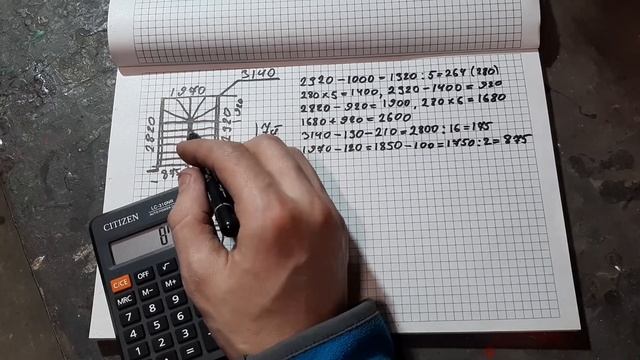 3140
1970
2820
2320
920
175
875
2320-1000=1320:5=264(280)
280×5=1400, 2320-1400=920
2820-920=1900, 280×6=1680
1680+920=2600
3140-130-210=2800:16=175
1970-120=1850-100=1750:2=875
CITIZEN
C/CE OFF √
MRC M- M+
7 8 9
4 5 6
1 2 3
0 =